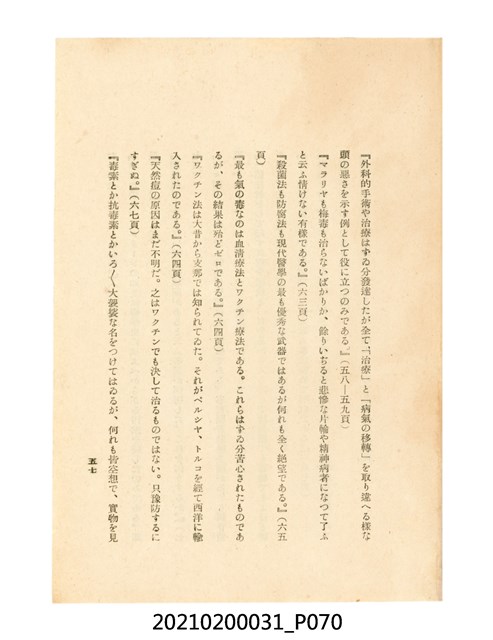 『外科的手術や治療はずゐ分發達したが全て、「治療」と「病氣の移轉」を取り違へる樣な
頭の惡さを示す例として役に立つのみである。』(五八—五九頁)
『マラリヤも梅毒も治らないばかりか、餘りいぢると悲慘な片輪や精神病者になつて了ふ
と云ふ情けない有樣である。』(六三頁)
『殺菌法も防腐法も現代醫學の最も優秀な武器ではあるが何れも全く絕望である。』(六五
頁)
『最も氣の毒なのは血淸療法とワクチン療法である。これらはずゐ分苦心されたものであ
るが、その結果は殆どゼロである。』(六四頁)
『ワクチン法は大昔から支那では知られてゐた。それがペルシヤ、トルコを經て西洋に輸
入されたのである。』(六四頁)
『天然痘の原因はまだ不明だ。之はワクチンでも決して治るものではない。只豫防するに
すぎぬ。』(六七頁)
『毒素とか抗毒素とかいろ〱大袈裟な名をつけてはゐるが、何れも皆空想で、實物を見
五七
20210200031_P070